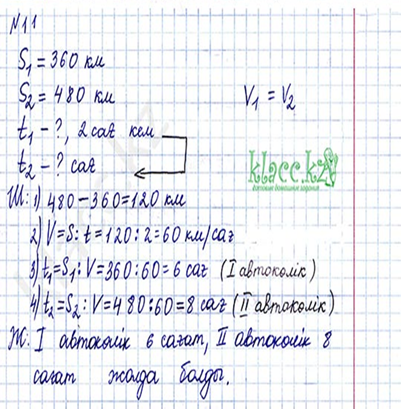 №11
S₁ = 360 км
S₂ = 480 км
V₁ = V₂
t₁ - ?, 2 сағ кем
t₂ - ? сағ
klacc.kz
Ш: 1) 480 - 360 = 120 км
2) V = S : t = 120 : 2 = 60 км/сағ
3) t₁ = S₁ : V = 360 : 60 = 6 сағ (I автокөлік)
4) t₂ = S₂ : V = 480 : 60 = 8 сағ (II автокөлік)
Ж: I автокөлік 6 сағат, II автокөлік 8
сағат жолда болды.